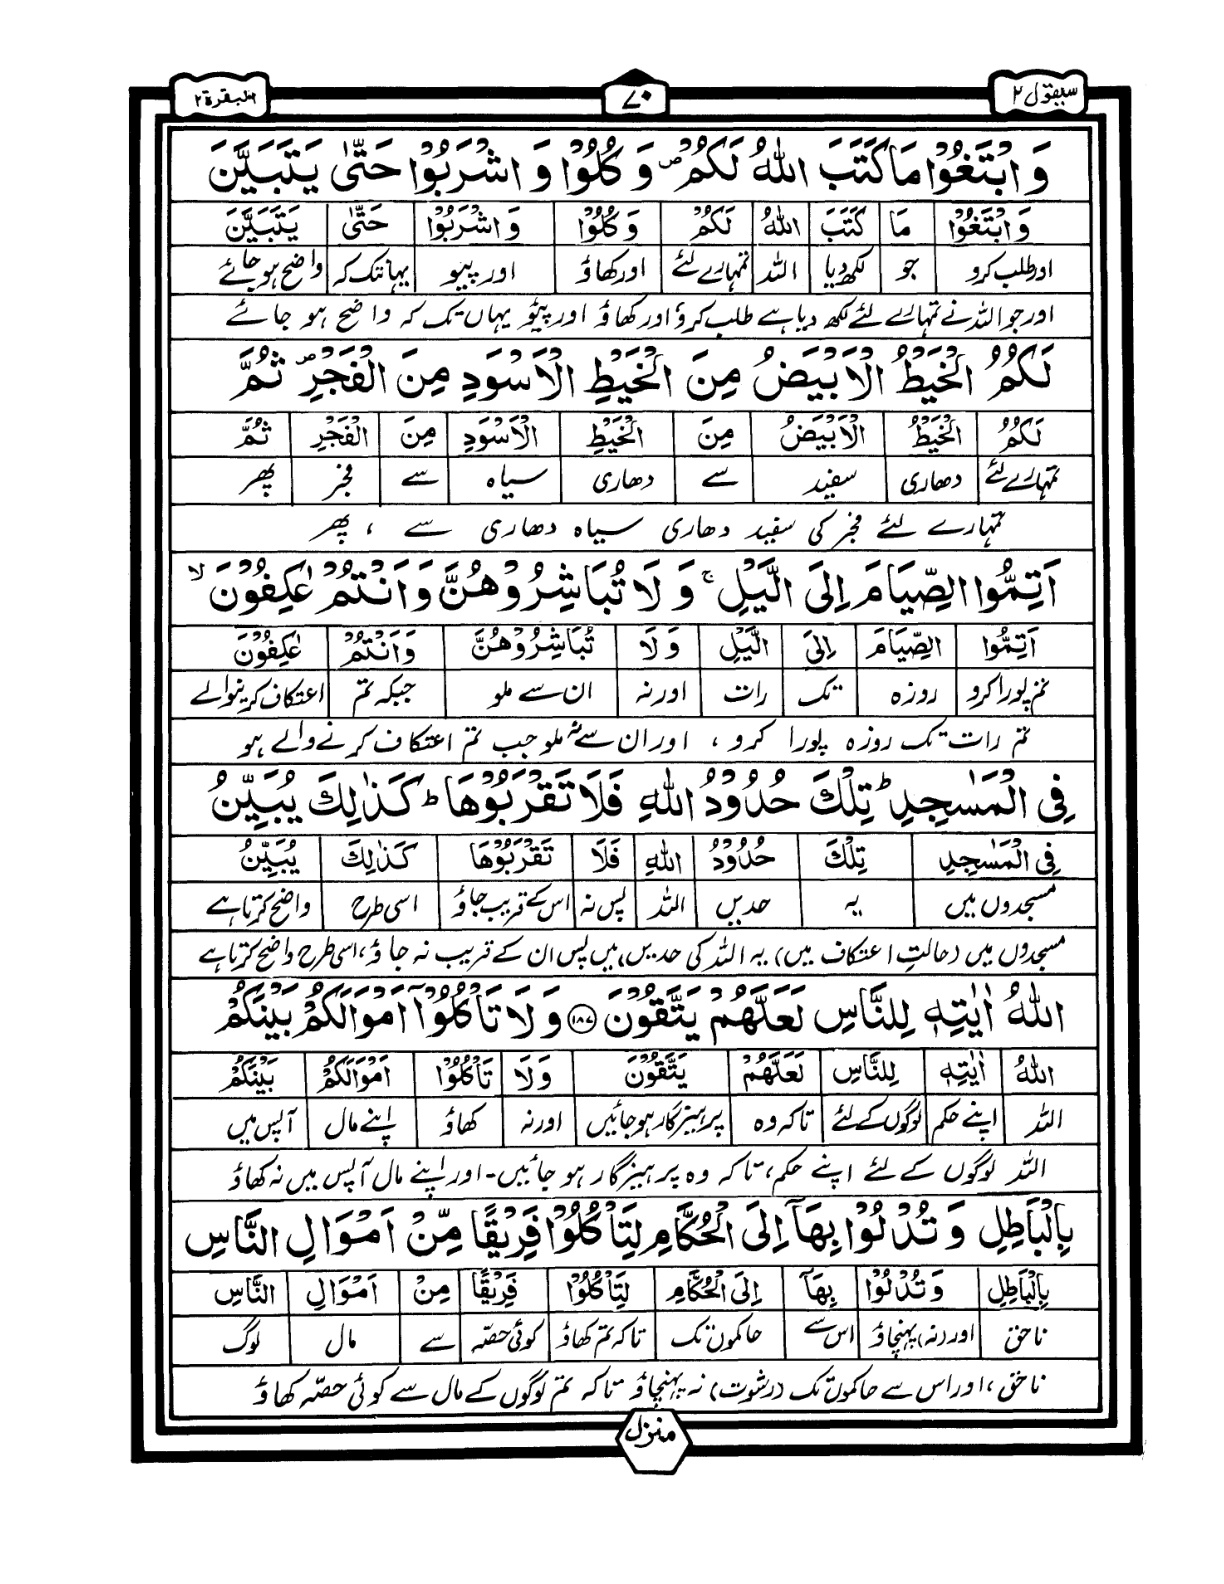 سیقول ۲
۷۰
البقرة ۲
وَ ابْتَغُوْا مَا كَتَبَ اللّٰهُ لَكُمْ ۪ وَ كُلُوْا وَ اشْرَبُوْا حَتّٰى یَتَبَیَّنَ
وَ ابْتَغُوْا مَا كَتَبَ اللّٰهُ لَكُمْ وَ كُلُوْا وَ اشْرَبُوْا حَتّٰى یَتَبَیَّنَ
اور طلب کرو جو لکھ دیا اللہ تمہارے لئے اور کھاؤ اور پیو یہانتک کہ واضح ہو جائے
اور جو اللہ نے تمہارے لئے لکھ دیا ہے طلب کرو اور کھاؤ اور پیؤ یہاں تک کہ واضح ہو جائے
لَكُمُ الْخَیْطُ الْاَبْیَضُ مِنَ الْخَیْطِ الْاَسْوَدِ مِنَ الْفَجْرِ ۪ ثُمَّ
لَكُمُ الْخَیْطُ الْاَبْیَضُ مِنَ الْخَیْطِ الْاَسْوَدِ مِنَ الْفَجْرِ ثُمَّ
تمہارے لئے دھاری سفید سے دھاری سیاہ سے فجر پھر
تمہارے لئے فجر کی سفید دھاری سیاہ دھاری سے ، پھر
اَتِمُّوا الصِّیَامَ اِلَى الَّیْلِ ۚ وَ لَا تُبَاشِرُوْهُنَّ وَ اَنْتُمْ عٰكِفُوْنَ ۙ
اَتِمُّوا الصِّیَامَ اِلَى الَّیْلِ وَ لَا تُبَاشِرُوْهُنَّ وَ اَنْتُمْ عٰكِفُوْنَ
تم پورا کرو روزہ تک رات اور نہ ان سے ملو جبکہ تم اعتکاف کرنیوالے
تم رات تک روزہ پورا کرو ، اور ان سے نہ ملو جب تم اعتکاف کرنے والے ہو
فِی الْمَسٰجِدِ ؕ تِلْكَ حُدُوْدُ اللّٰهِ فَلَا تَقْرَبُوْهَا ؕ كَذٰلِكَ یُبَیِّنُ
فِی الْمَسٰجِدِ تِلْكَ حُدُوْدُ اللّٰهِ فَلَا تَقْرَبُوْهَا كَذٰلِكَ یُبَیِّنُ
مسجدوں میں یہ حدیں اللہ پس نہ اس کے قریب جاؤ اسی طرح واضح کرتا ہے
مسجدوں میں (حالتِ اعتکاف میں) یہ اللہ کی حدیں ہیں پس ان کے قریب نہ جاؤ، اسی طرح واضح کرتا ہے
اللّٰهُ اٰیٰتِهٖ لِلنَّاسِ لَعَلَّهُمْ یَتَّقُوْنَ ﴿۱۸۷﴾ وَ لَا تَاْكُلُوْۤا اَمْوَالَكُمْ بَیْنَكُمْ
اللّٰهُ اٰیٰتِهٖ لِلنَّاسِ لَعَلَّهُمْ یَتَّقُوْنَ وَ لَا تَاْكُلُوْۤا اَمْوَالَكُمْ بَیْنَكُمْ
اللہ اپنے حکم لوگوں کے لئے تاکہ وہ پرہیزگار ہو جائیں اور نہ کھاؤ اپنے مال آپس میں
اللہ لوگوں کے لئے اپنے حکم، تاکہ وہ پرہیزگار ہو جائیں - اور اپنے مال آپس میں نہ کھاؤ
بِالْبَاطِلِ وَ تُدْلُوْا بِهَاۤ اِلَى الْحُكَّامِ لِتَاْكُلُوْا فَرِیْقًا مِّنْ اَمْوَالِ النَّاسِ
بِالْبَاطِلِ وَ تُدْلُوْا بِهَاۤ اِلَى الْحُكَّامِ لِتَاْكُلُوْا فَرِیْقًا مِنْ اَمْوَالِ النَّاسِ
ناحق اور (نہ) پہنچاؤ اس سے حاکموں تک تاکہ تم کھاؤ کوئی حصّہ سے مال لوگ
ناحق ، اور اس سے حاکموں تک (رشوت) نہ پہنچاؤ تاکہ تم لوگوں کے مال سے کوئی حصّہ کھاؤ
منزل